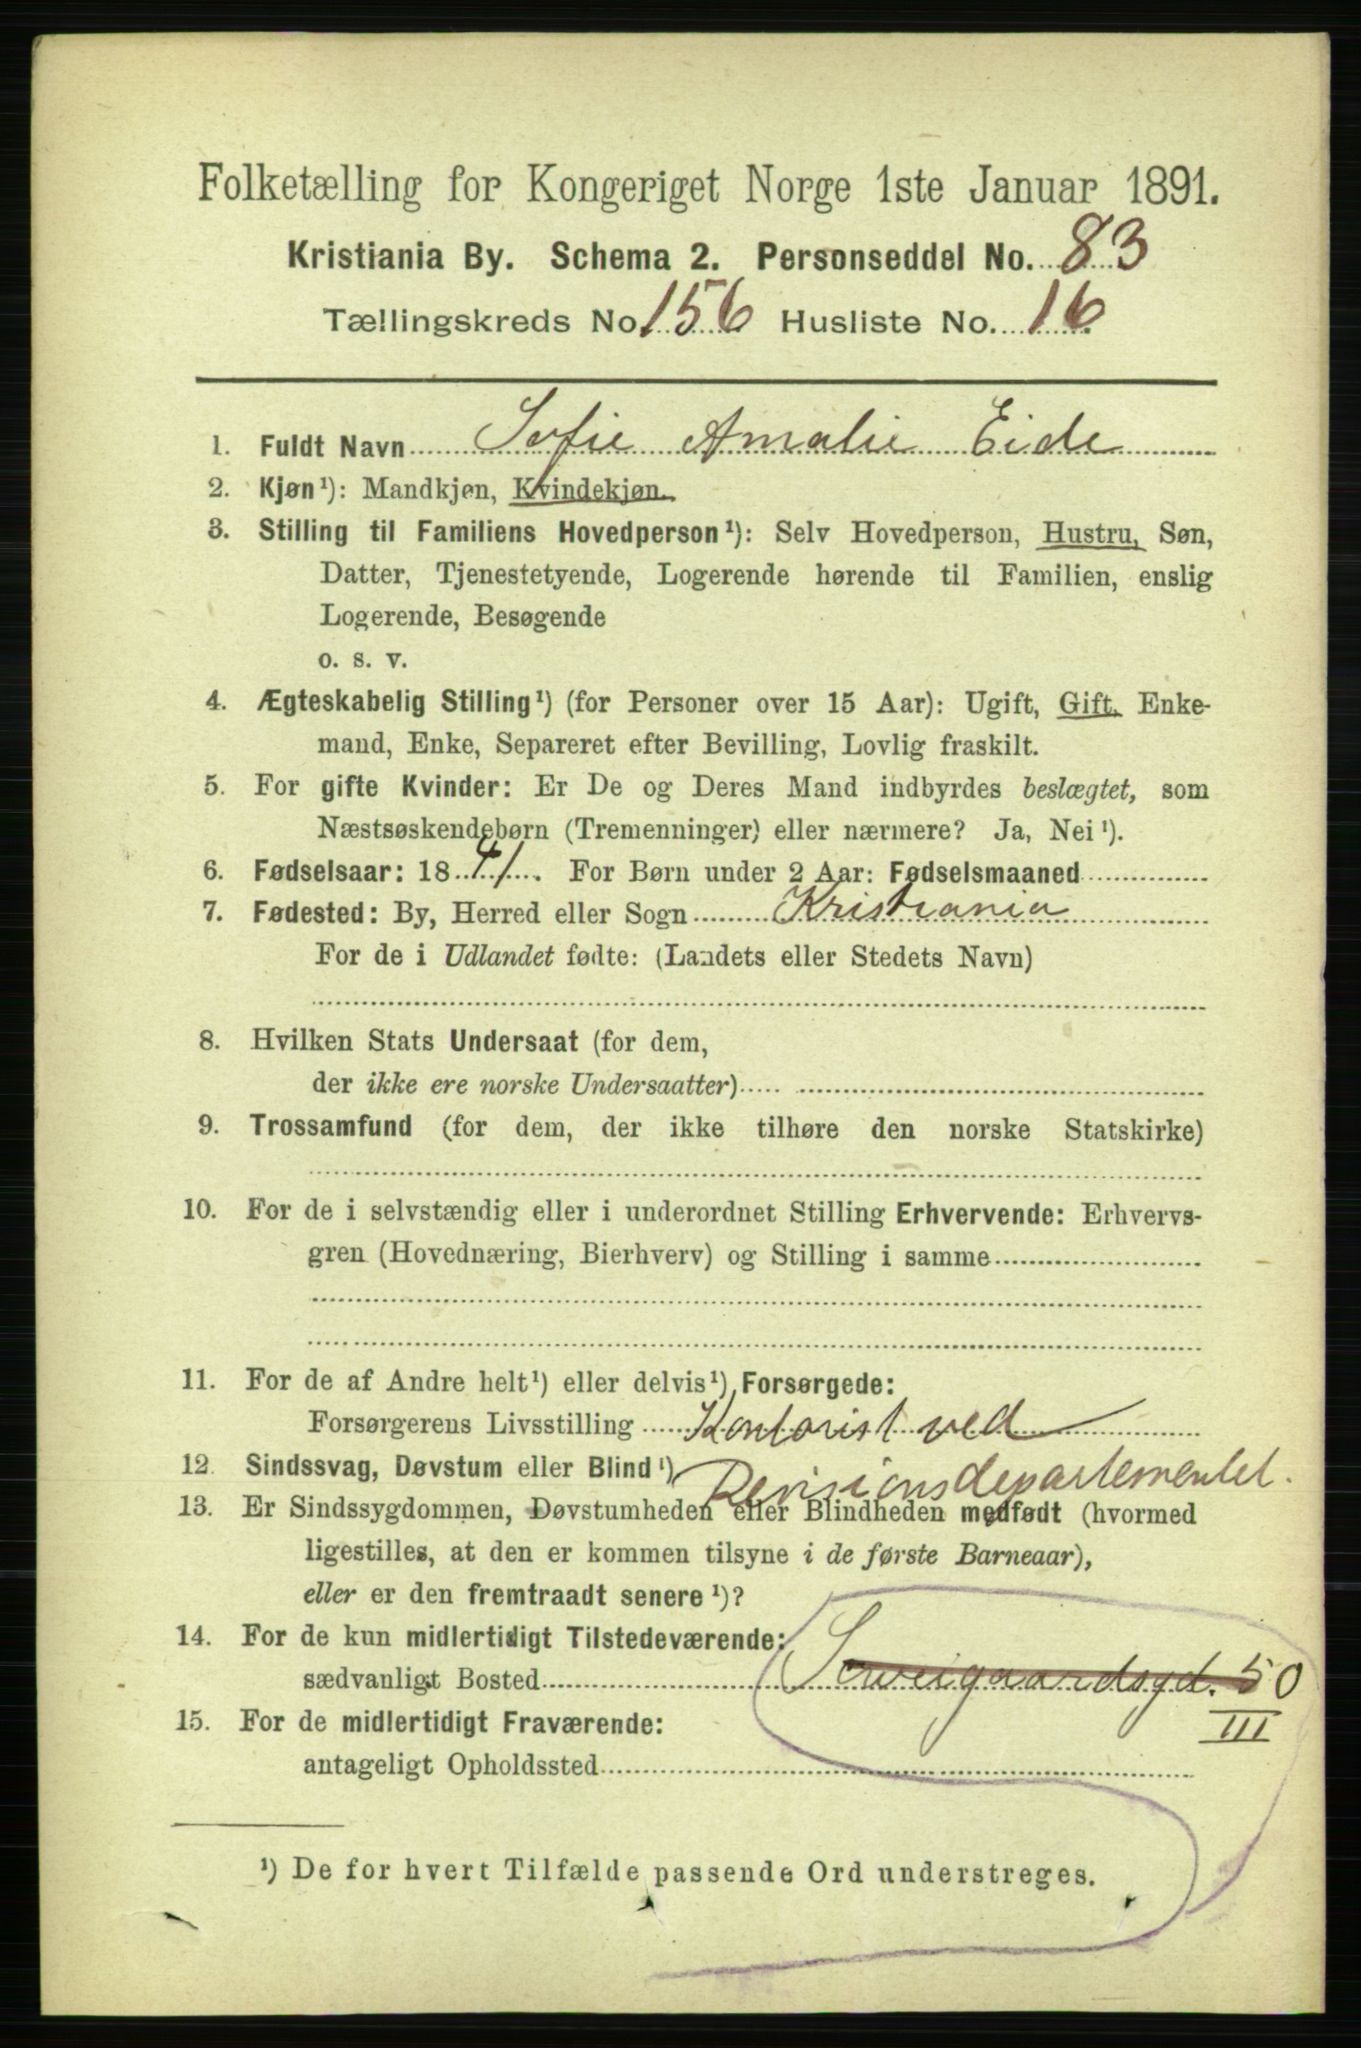 Folketælling for Kongeriget Norge 1ste Januar 1891.
Kristiania By. Schema 2. Personseddel No. 83
Tællingskreds No 156 Husliste No. 16
1. Fuldt Navn Sofie Amalie Eide
2. Kjøn¹): Mandkjøn, Kvindekjøn.
3. Stilling til Familiens Hovedperson¹): Selv Hovedperson, Hustru, Søn,
Datter, Tjenestetyende, Logerende hørende til Familien, enslig
Logerende, Besøgende
o. s. v.
4. Ægteskabelig Stilling¹) (for Personer over 15 Aar): Ugift, Gift, Enke-
mand, Enke, Separeret efter Bevilling, Lovlig fraskilt.
5. For gifte Kvinder: Er De og Deres Mand indbyrdes beslægtet, som
Næstsøskendebørn (Tremenninger) eller nærmere? Ja, Nei¹).
6. Fødselsaar: 1841. For Børn under 2 Aar: Fødselsmaaned
7. Fødested: By, Herred eller Sogn Kristiania
For de i Udlandet fødte: (Landets eller Stedets Navn)
8. Hvilken Stats Undersaat (for dem,
der ikke ere norske Undersaatter)
9. Trossamfund (for dem, der ikke tilhøre den norske Statskirke)
10. For de i selvstændig eller i underordnet Stilling Erhvervende: Erhvervs-
gren (Hovednæring, Bierhverv) og Stilling i samme
11. For de af Andre helt¹) eller delvis¹) Forsørgede:
Forsørgerens Livsstilling Kontorist ved
12. Sindssvag, Døvstum eller Blind¹) Revisionsdepartementet.
13. Er Sindssygdommen, Døvstumheden eller Blindheden medfødt (hvormed
ligestilles, at den er kommen tilsyne i de første Barneaar),
eller er den fremtraadt senere¹)?
14. For de kun midlertidigt Tilstedeværende:
sædvanligt Bosted Sweigaardsgd. 50
III
15. For de midlertidigt Fraværende:
antageligt Opholdssted
¹) De for hvert Tilfælde passende Ord understreges.